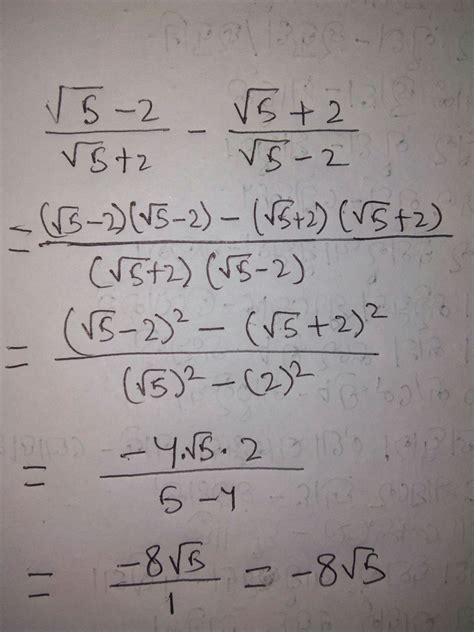 (√5 - 2)/(√5 + 2) - (√5 + 2)/(√5 - 2)
= ((√5 - 2)(√5 - 2) - (√5 + 2)(√5 + 2))/((√5 + 2)(√5 - 2))
= ((√5 - 2)² - (√5 + 2)²)/((√5)² - (2)²)
= (-4·√5·2)/(5 - 4)
= (-8√5)/1 = -8√5